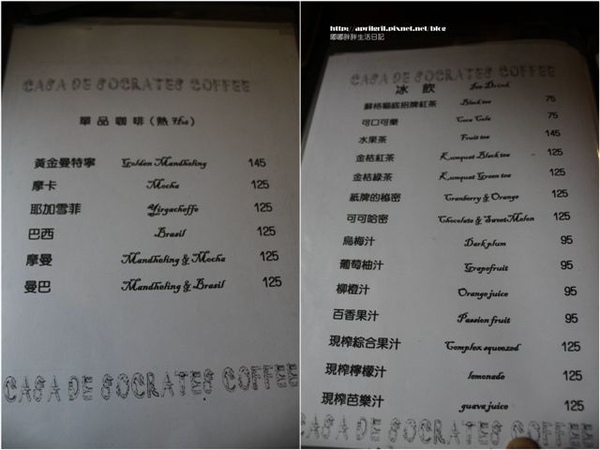 CASA DE SOCRATES COFFEE
單品咖啡(熱Hot)
黃金曼特寧 Golden Mandheling 145
摩卡 Mocha 125
耶加雪菲 Yirgacheffe 125
巴西 Brasil 125
摩曼 Mandheling & Mocha 125
曼巴 Mandheling & Brasil 125
CASA DE SOCRATES COFFEE
http://aprilgril.pixnet.net/blog
嘟嘟胖胖生活日記
CASA DE SOCRATES COFFEE
冰飲 Ice Drink
蘇格貓底招牌紅茶 Black tea 75
可口可樂 Coca Cola 75
水果茶 Fruit tea 145
金桔紅茶 Kumquat Black tea 125
金桔綠茶 Kumquat Green tea 125
紙牌的秘密 Cranberry & Orange 125
可可哈密 Chocolate & Sweet Melon 125
烏梅汁 Dark plum 95
葡萄柚汁 Grapefruit 95
柳橙汁 Orange juice 95
百香果汁 Passion fruit 95
現榨綜合果汁 Complex squeezed 125
現榨檸檬汁 lemonade 125
現榨芭樂汁 guava juice 125
CASA DE SOCRATES COFFEE